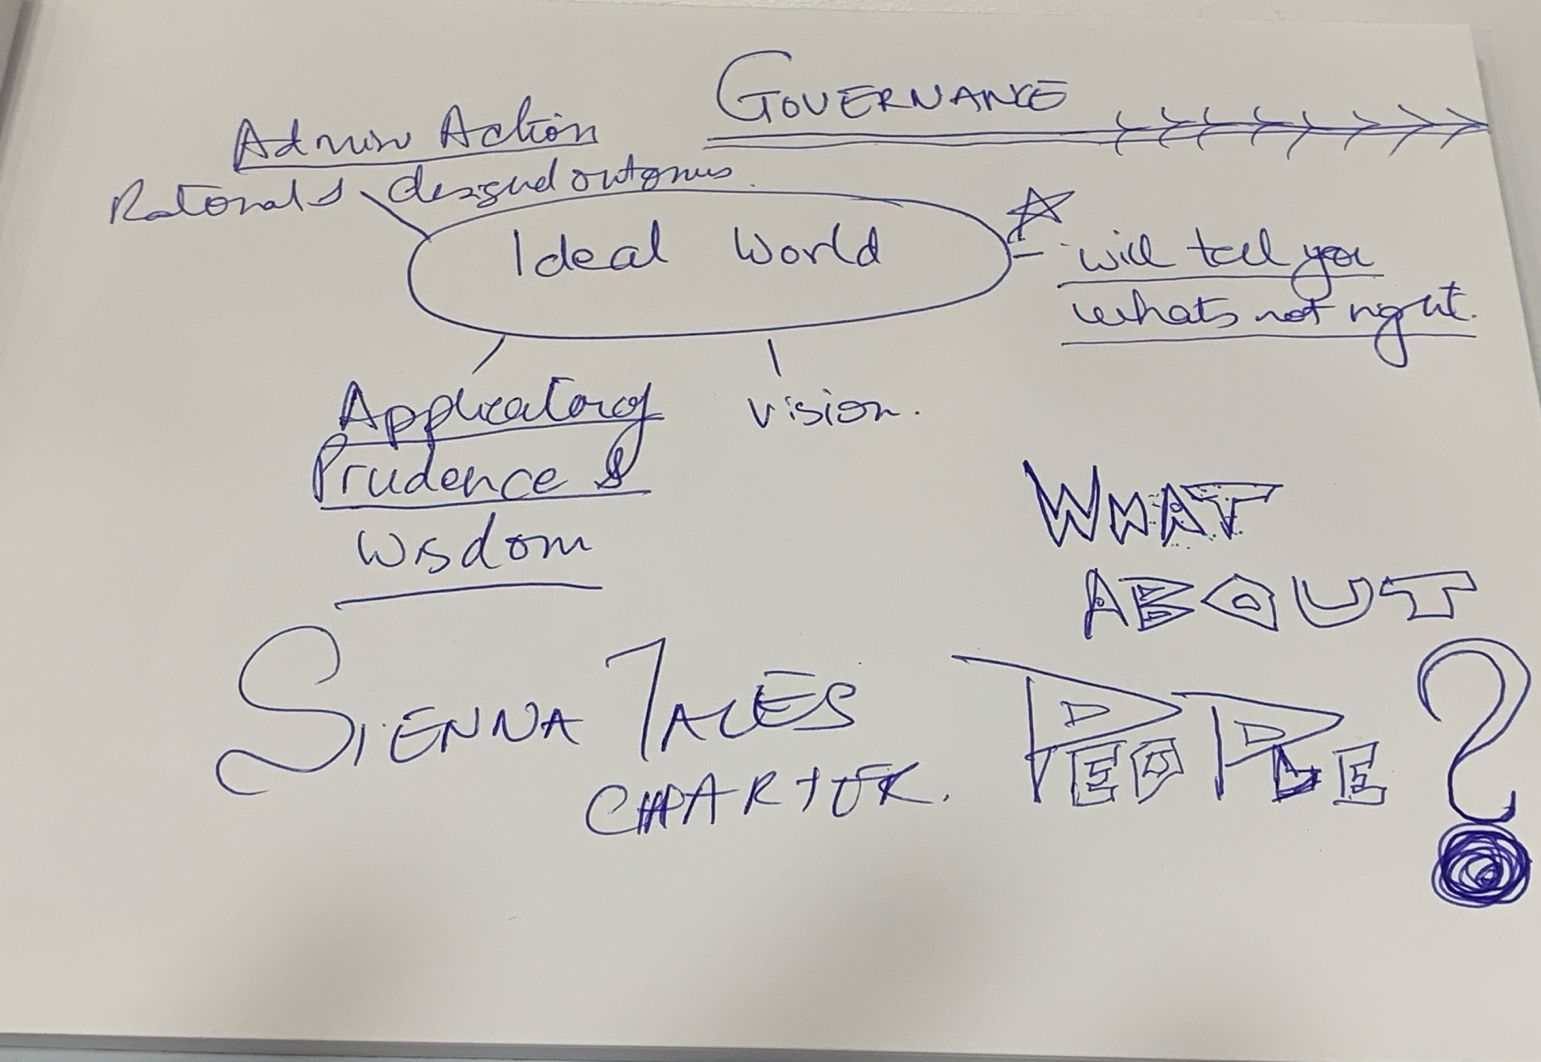 GOVERNANCE
Admin Action
Rational & desired outcomes.
Ideal World
- will tell you
whats not right.
Application of
Prudence &
Wisdom
Vision.
WHAT
ABOUT
PEOPLE?
SIENNA TALES
CHARTER.